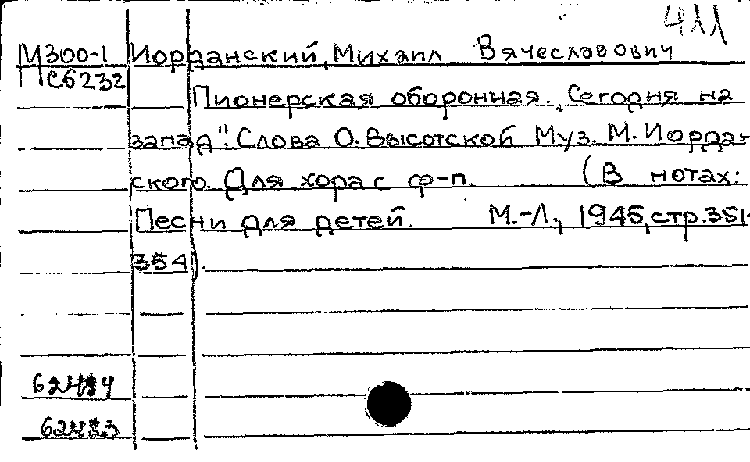 411
М300-1 Иорданский, Михаил Вячеславович
П С6232
Пионерская оборонная. „Сегодня на
запад". Слова О. Высотской Муз. М. Иордан-
ского. Для хора с ф-п. (В нотах:
Песни для детей. М.-Л., 1945, стр. 351-
354).